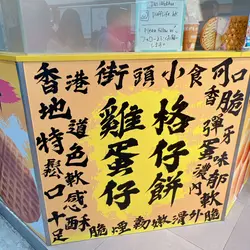 香港街頭小食可口
地道
特色
鬆軟
口感
十足
酥脆
煙韌
嫩滑
外脆
內軟
濃郁
蛋味
彈牙
香脆
雞蛋仔
格仔餅